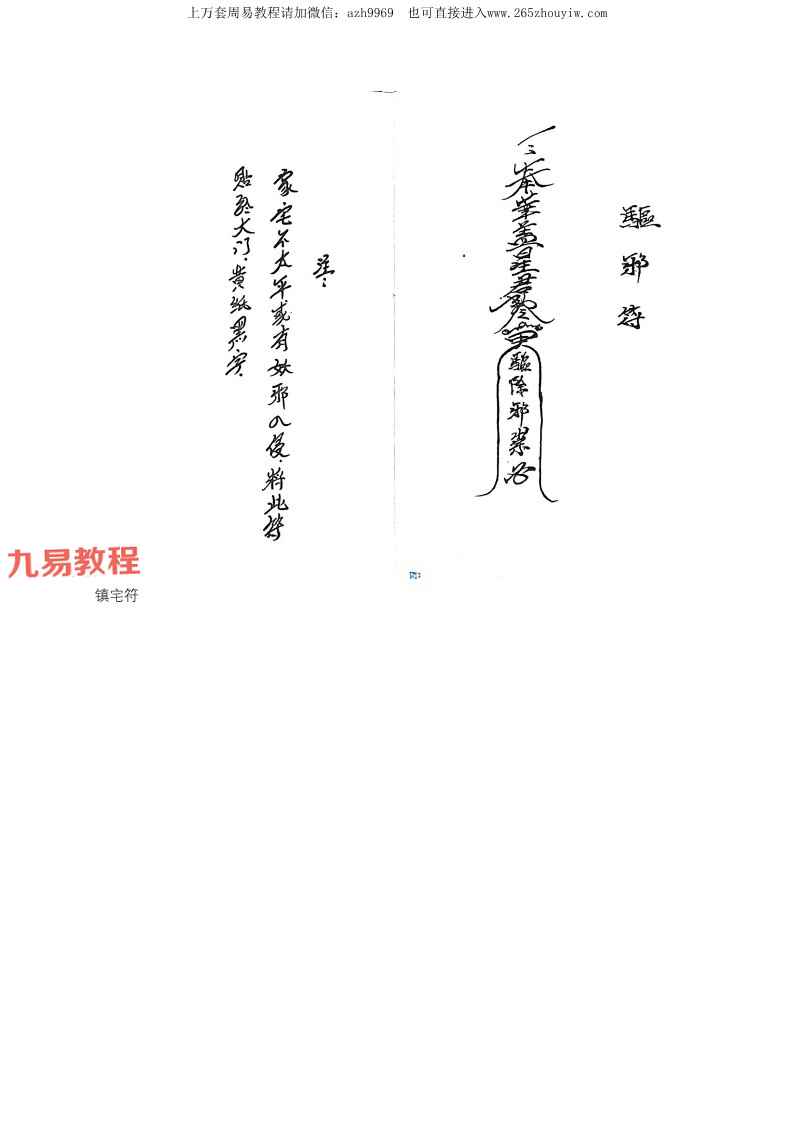 上万套周易教程请加微信：azh9969 也可直接进入www.265zhouyiw.com
驅邪符
奉華蓋星君敕令
驅除邪祟
注：
家宅不太平或有妖邪入侵，将此符
贴大门，黄纸黑字，
九易教程
镇宅符